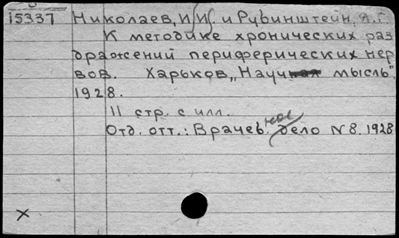 15337 Николаев, И.И. и Рубинштейн, Я.Г.
К методике хронических раз
дражений периферических нер
вов. Харьков, „Научная мысль".
1928.
11 стр. с илл.
Отд. отт.: Врачебное дело N 8. 1928
X